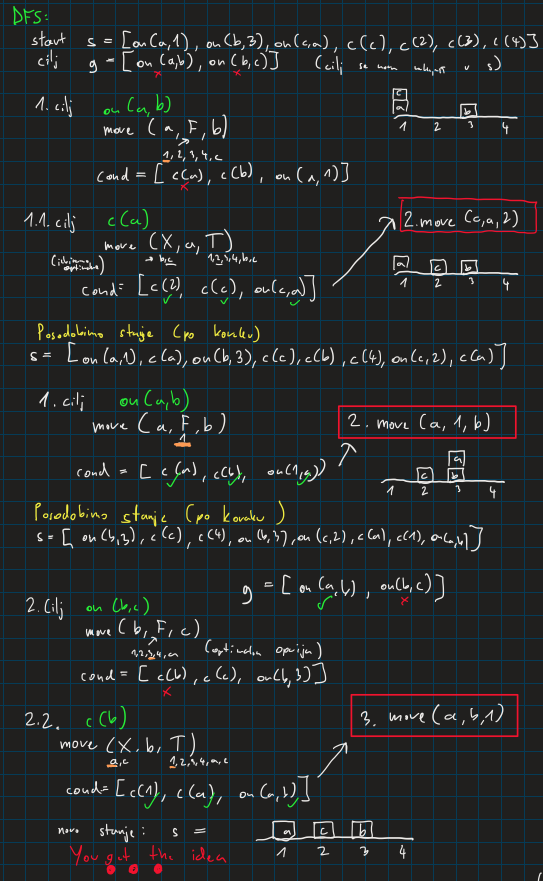 DFS:
start s = [on(a,1), on(b,3), on(c,a), c(c), c(2), c(3), c(4)]
cilj g = [on(a,b), on(b,c)] (cilj se v s)
1. cilj on(a,b)
move (a, F, b)
1,2,3,4,c
cond = [c(a), c(b), on(a,1)]
c
a b
1 2 3 4
1.1. cilj c(a)
move (X, a, T)
b,c 1,2,3,4,b,c
cond = [c(2), c(c), on(c,a)]
2. move (c,a,2)
a c b
1 2 3 4
Posodobimo stanje (po koraku)
s = [on(a,1), c(a), on(b,3), c(c), c(b), c(4), on(c,2), c(a)]
1. cilj on(a,b)
move (a, F, b)
1
cond = [c(a), c(b), on(1,a)]
2. move (a, 1, b)
a
c b
1 2 3 4
Posodobimo stanje (po koraku)
s = [on(b,3), c(c), c(4), on(b,3), on(c,2), c(a), c(1), on(a,b)]
g = [on(a,b), on(b,c)]
2. cilj on(b,c)
move (b, F, c)
1,2,3,4,a (optimalna opcija)
cond = [c(b), c(c), on(b,3)]
2.2. c(b)
move (X, b, T)
a,c 1,2,3,4,a,c
cond = [c(1), c(a), on(a,b)]
3. move (a,b,1)
novo stanje: s =
a c b
1 2 3 4
You get the idea